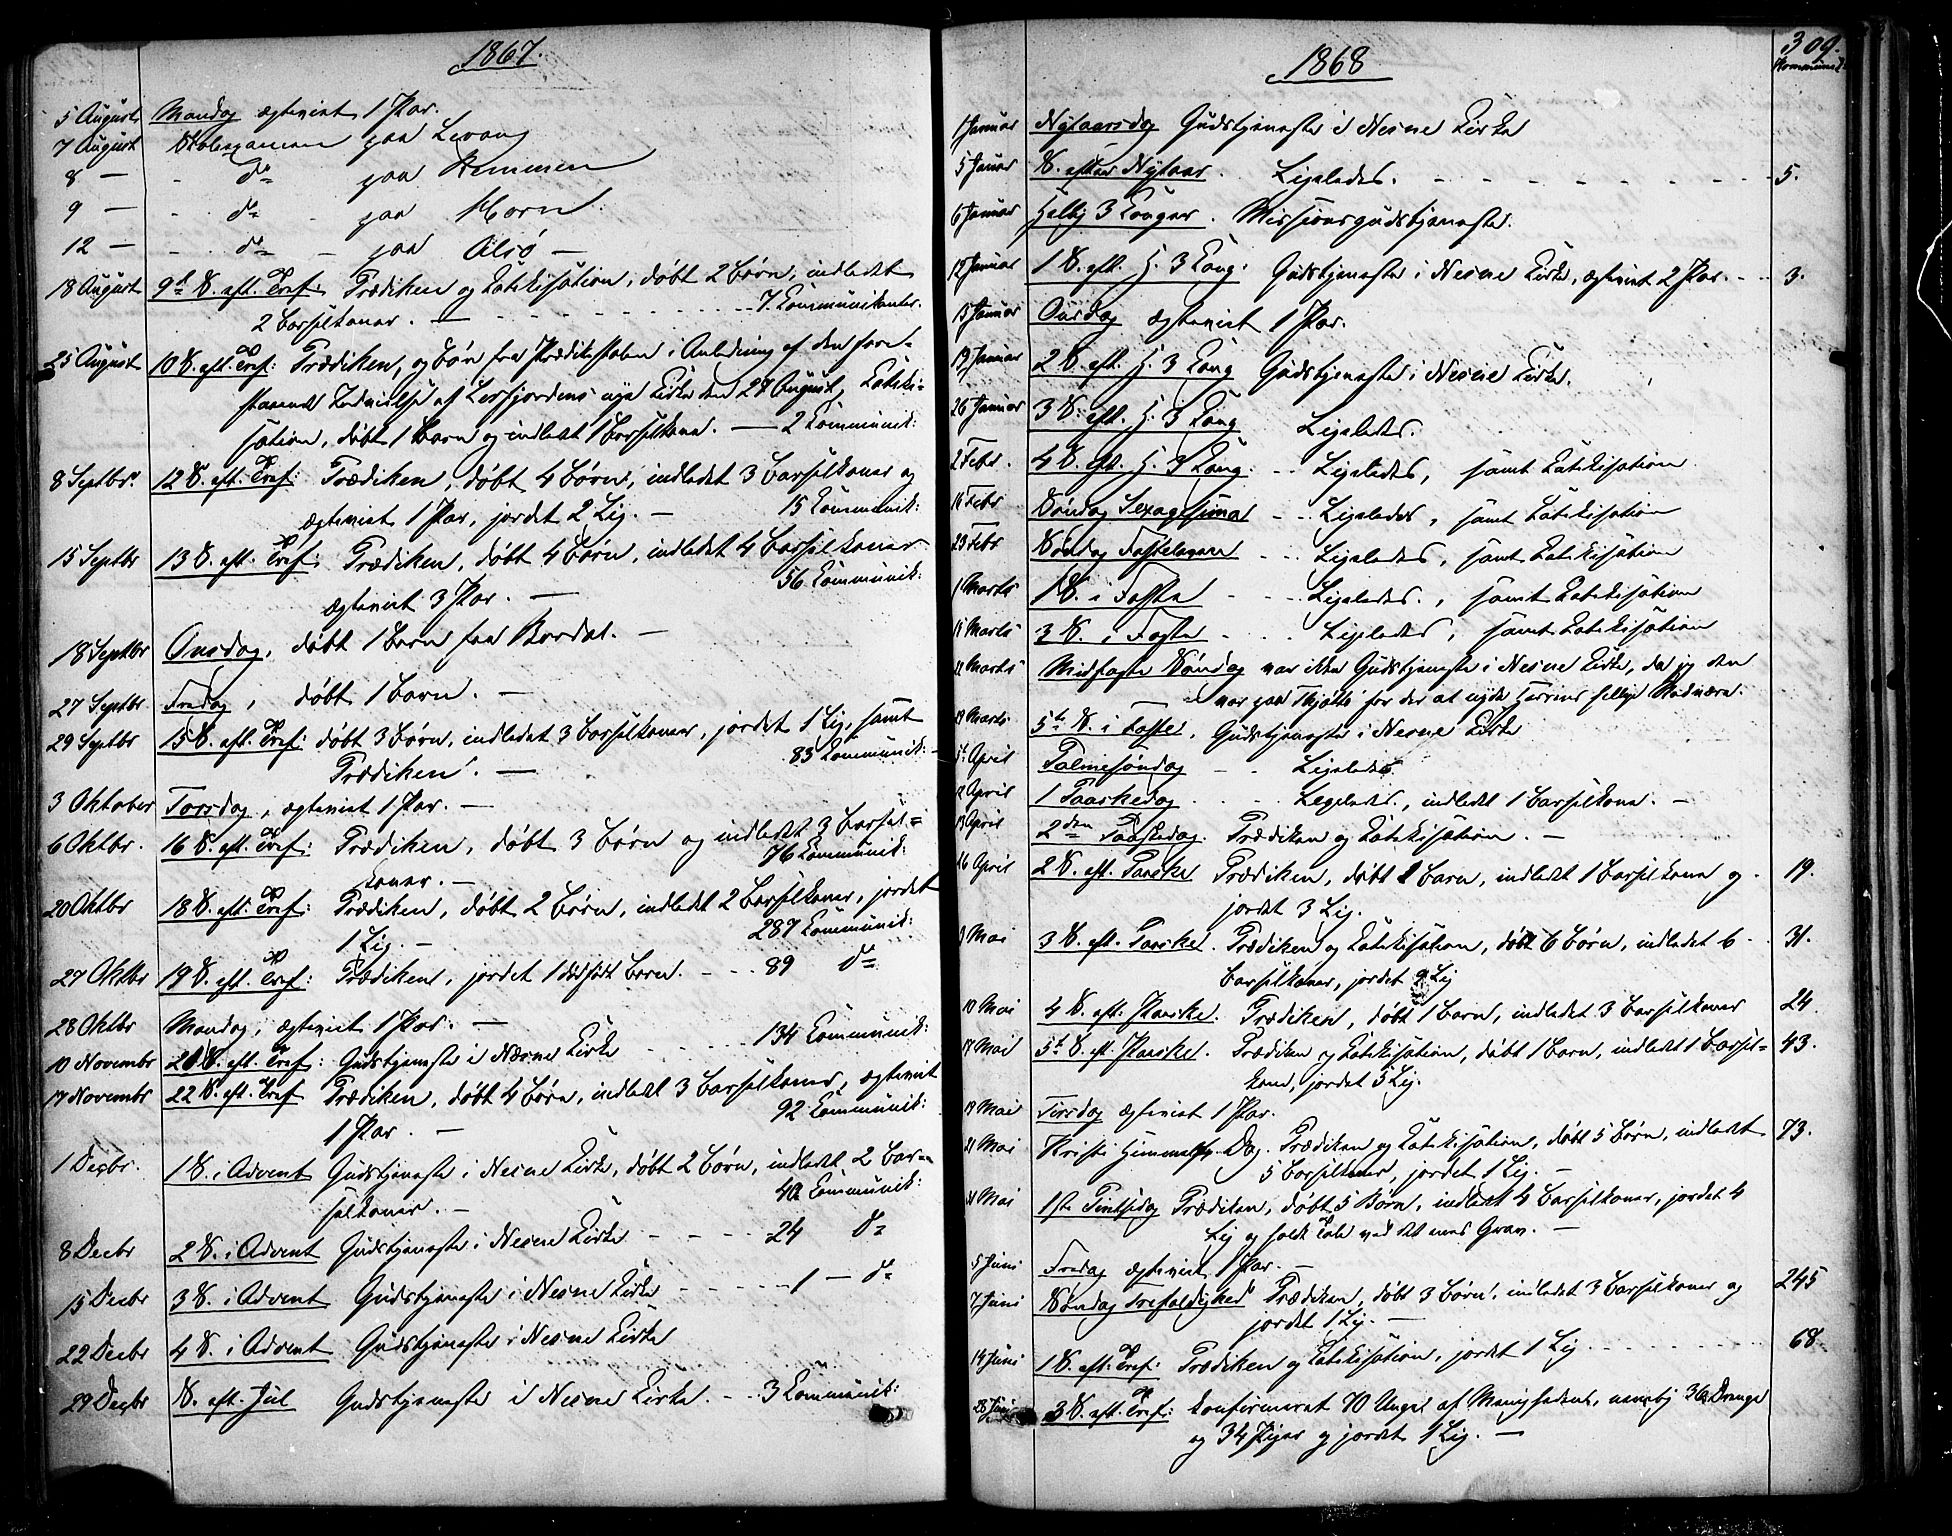 1867.
5 August Mandag ægteviet 1 Par.
7 August Skolexamen paa Levang
8 — - do paa Hemmen
9 — - do - paa Horn
12 — - do - paa Alsö —
18 August 9de S. eft. Tref: Prædiken og Katekisation, döbt 2 Börn, indledet
2 Barselkoner. — 7 Kommunikanter.
25 August 10 S. eft. Tref: Prædiken, og Bön fra Prædikestolen i Anledning af den fore-
staaende Indvielse af Leirfjordens nye Kirke den 28 August, Kateki-
sation, döbt 1 Barn og indledt 1 Barselkone. — 2 Kommunik:
8 Septbr. 12 S. eft. Tref: Prædiken, döbt 4 Börn, indledet 3 Barselkoner og
ægteviet 1 Par, jordet 2 Lig. — 15 Kommunik:
15 Septbr 13 S. eft. Tref: Prædiken, döbt 4 Börn, indledet 4 Barselkoner
ægteviet 3 Par. — 56 Kommunik:
18 Septbr Onsdag, döbt 1 Barn fra —
27 Septbr Fredag, döbt 1 Barn. —
29 Septbr 15 S. eft. Tref: döbt 3 Börn, indledet 3 Barselkoner, jordet 1 Lig, samt
Prædiken. — 83 Kommunik:
3 Oktober Torsdag, ægteviet 1 Par. —
6 Oktbr. 16 S. eft. Tref: Prædiken, döbt 3 Börn og indledet 3 Barsel=
koner. — 76 Kommunik:
20 Oktbr 18 S. eft. Tref: Prædiken, döbt 2 Börn, indledet 2 Barselkoner, jordet
1 Lig. — 287 Kommunik:
27 Oktbr 19 S. eft. Tref: Prædiken, jordet 1 dödfödt Barn. - - - 89 do
28 Oktbr Mandag, ægteviet 1 Par. —
10 Novembr S. eft. Tref: Gudstjeneste i Næsne Kirke - - - 134 Kommunik:
17 Novembr 22 S. eft. Tref Prædiken, döbt 4 Börn, indledt 3 Barselkoner, ægteviet
1 Par. — 92 Kommunik:
1 Decbr. 1 S. i Advent Gudstjeneste i Nesne Kirke, döbt 2 Börn, indledet 2 Bar=
selkoner. — 40 Kommunik:
8 Decbr 2 S. i Advent Gudstjeneste i Nesne Kirke - - - 24 do
15 Decbr 3 S. i Advent Gudstjeneste i Nesne Kirke - - - 1 — do
22 Decbr 4 S. i Advent Gudstjeneste i Nesne Kirke
29 Decbr S. eft. Jul Gudstjeneste i Nesne Kirke. - - 3 Kommunik:
1868
309.
1 Januar Nytaarsdag Gudstjeneste i Nesne Kirke
5 Januar S. efter Nytaar. Ligeledes. - - - 5.
6 Januar Hellig 3 Konger. Missionsgudstjeneste.
12 Januar 1 S. eft. H. 3 Kong: Gudstjeneste i Nesne Kirke, ægteviet 2 Par. - - 3.
15 Januar Onsdag ægteviet 1 Par.
19 Januar 2 S. eft. H. 3 Kong Gudstjeneste i Nesne Kirke.
26 Januar 3 S. eft. H. 3 Kong Ligeledes.
2 Febr. 4 S. eft. H. 3 Kong. - - Ligeledes, samt Katekisation
16 Febr Söndag Sexagesima - - Ligeledes, samt Katekisation
23 Febr Söndag Fastelavn - - Ligeledes, samt Katekisation
1 Marts 1 S. i Faste - - Ligeledes, samt Katekisation
15 Marts 3 S. i Faste - - Ligeledes, samt Katekisation
22 Marts Midfaste Söndag var ikke Gudstjeneste i Nesne Kirke, da jeg den
var paa Tjötta for der at nyde Herrens hellige Nadvere.
29 Marts 5te S. i Faste. Gudstjeneste i Nesne Kirke
5 April Palmesöndag - - Ligeledes.
12 April 1 Paaskedag - - Ligeledes, indledt 1 Barselkone. —
13 April 2den Paaskedag. Prædiken og Katekisation. —
26 April 2 S. eft. Paaske Prædiken, döbt 1 Barn, indledet 1 Barselkone og - 19.
jordet 3 Lig.
3 Mai 3 S. eft. Paaske. Prædiken og Katekisation, döbt 6 Börn, indledet 6 - - 31.
Barselkoner, jordet Lig
10 Mai 4 S. eft. Paaske. Prædiken, döbt 1 Barn, indledet 3 Barselkoner 24
17 Mai 5te S. eft. Paaske. Prædiken og Katekisation, döbt 1 Barn, indledet 1 Barsel= 43.
kone, jordet 5 Lig.
19 Mai Tirsdag ægteviet 1 Par.
21 Mai Kristi Himmelf. Dag. Prædiken og Katekisation, döbt 5 Börn, indledet 73.
5 Barselkoner, jordet 1 Lig. —
31 Mai 1ste Pintsedag Prædiken, döbt 5 Börn, indledt 4 Barselkoner, jordet 4
Lig og holdt Tale ved det enes Grav. —
5 Juni Fredag ægteviet 1 Par. —
7 Juni Söndag Trefoldighed Prædiken, döbt 3 Börn, indledet 3 Barselkoner og 245
jordet 1 Lig. —
14 Juni 1 S. eft. Tref: Prædiken og Katekisation, jordet 1 Lig - - - 68
28 Juni 3 S. eft. Tref: Konfirmeret 70 Unge af Menigheden, nemlig 36 Drenge
og 34 Piger og jordet 1 Lig. —